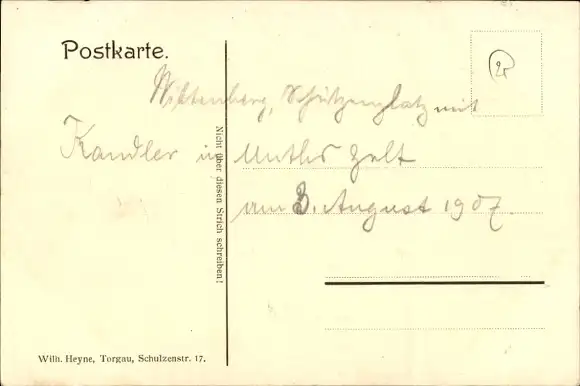 Postkarte.
Wittenberg, Schützenplatz mit
Kandler in Muths Zelt
am 3. August 1907.
Nicht über diesen Strich schreiben!
Wilh. Heyne, Torgau, Schulzenstr. 17.